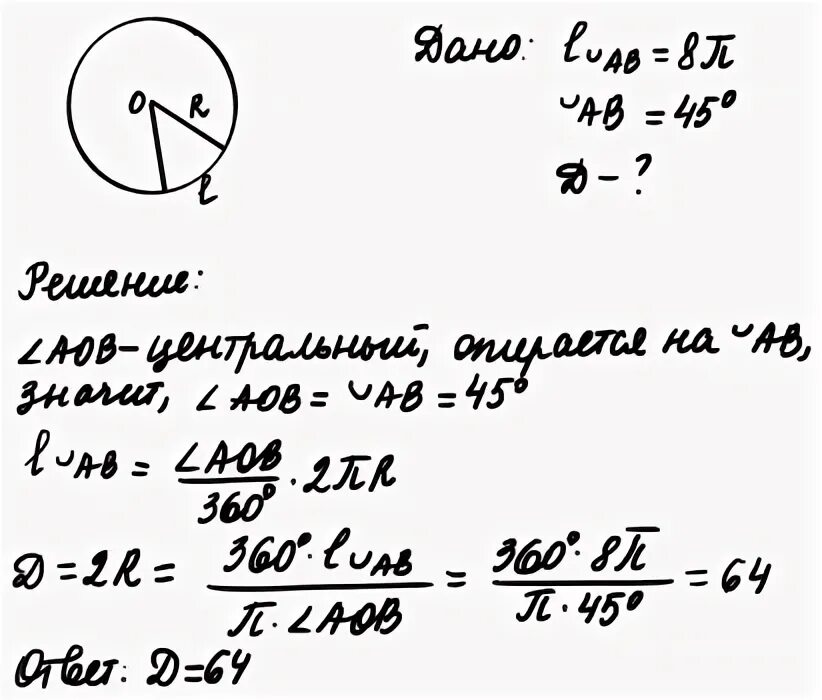 O R l
Дано: l ◡AB = 8π
◡AB = 45°
Д - ?
Решение:
∠AOB - центральный, опирается на ◡AB,
значит, ∠AOB = ◡AB = 45°
l ◡AB = ∠AOB / 360° · 2πR
Д = 2R = 360° · l ◡AB / π · ∠AOB = 360° · 8π / π · 45° = 64
Ответ: Д = 64